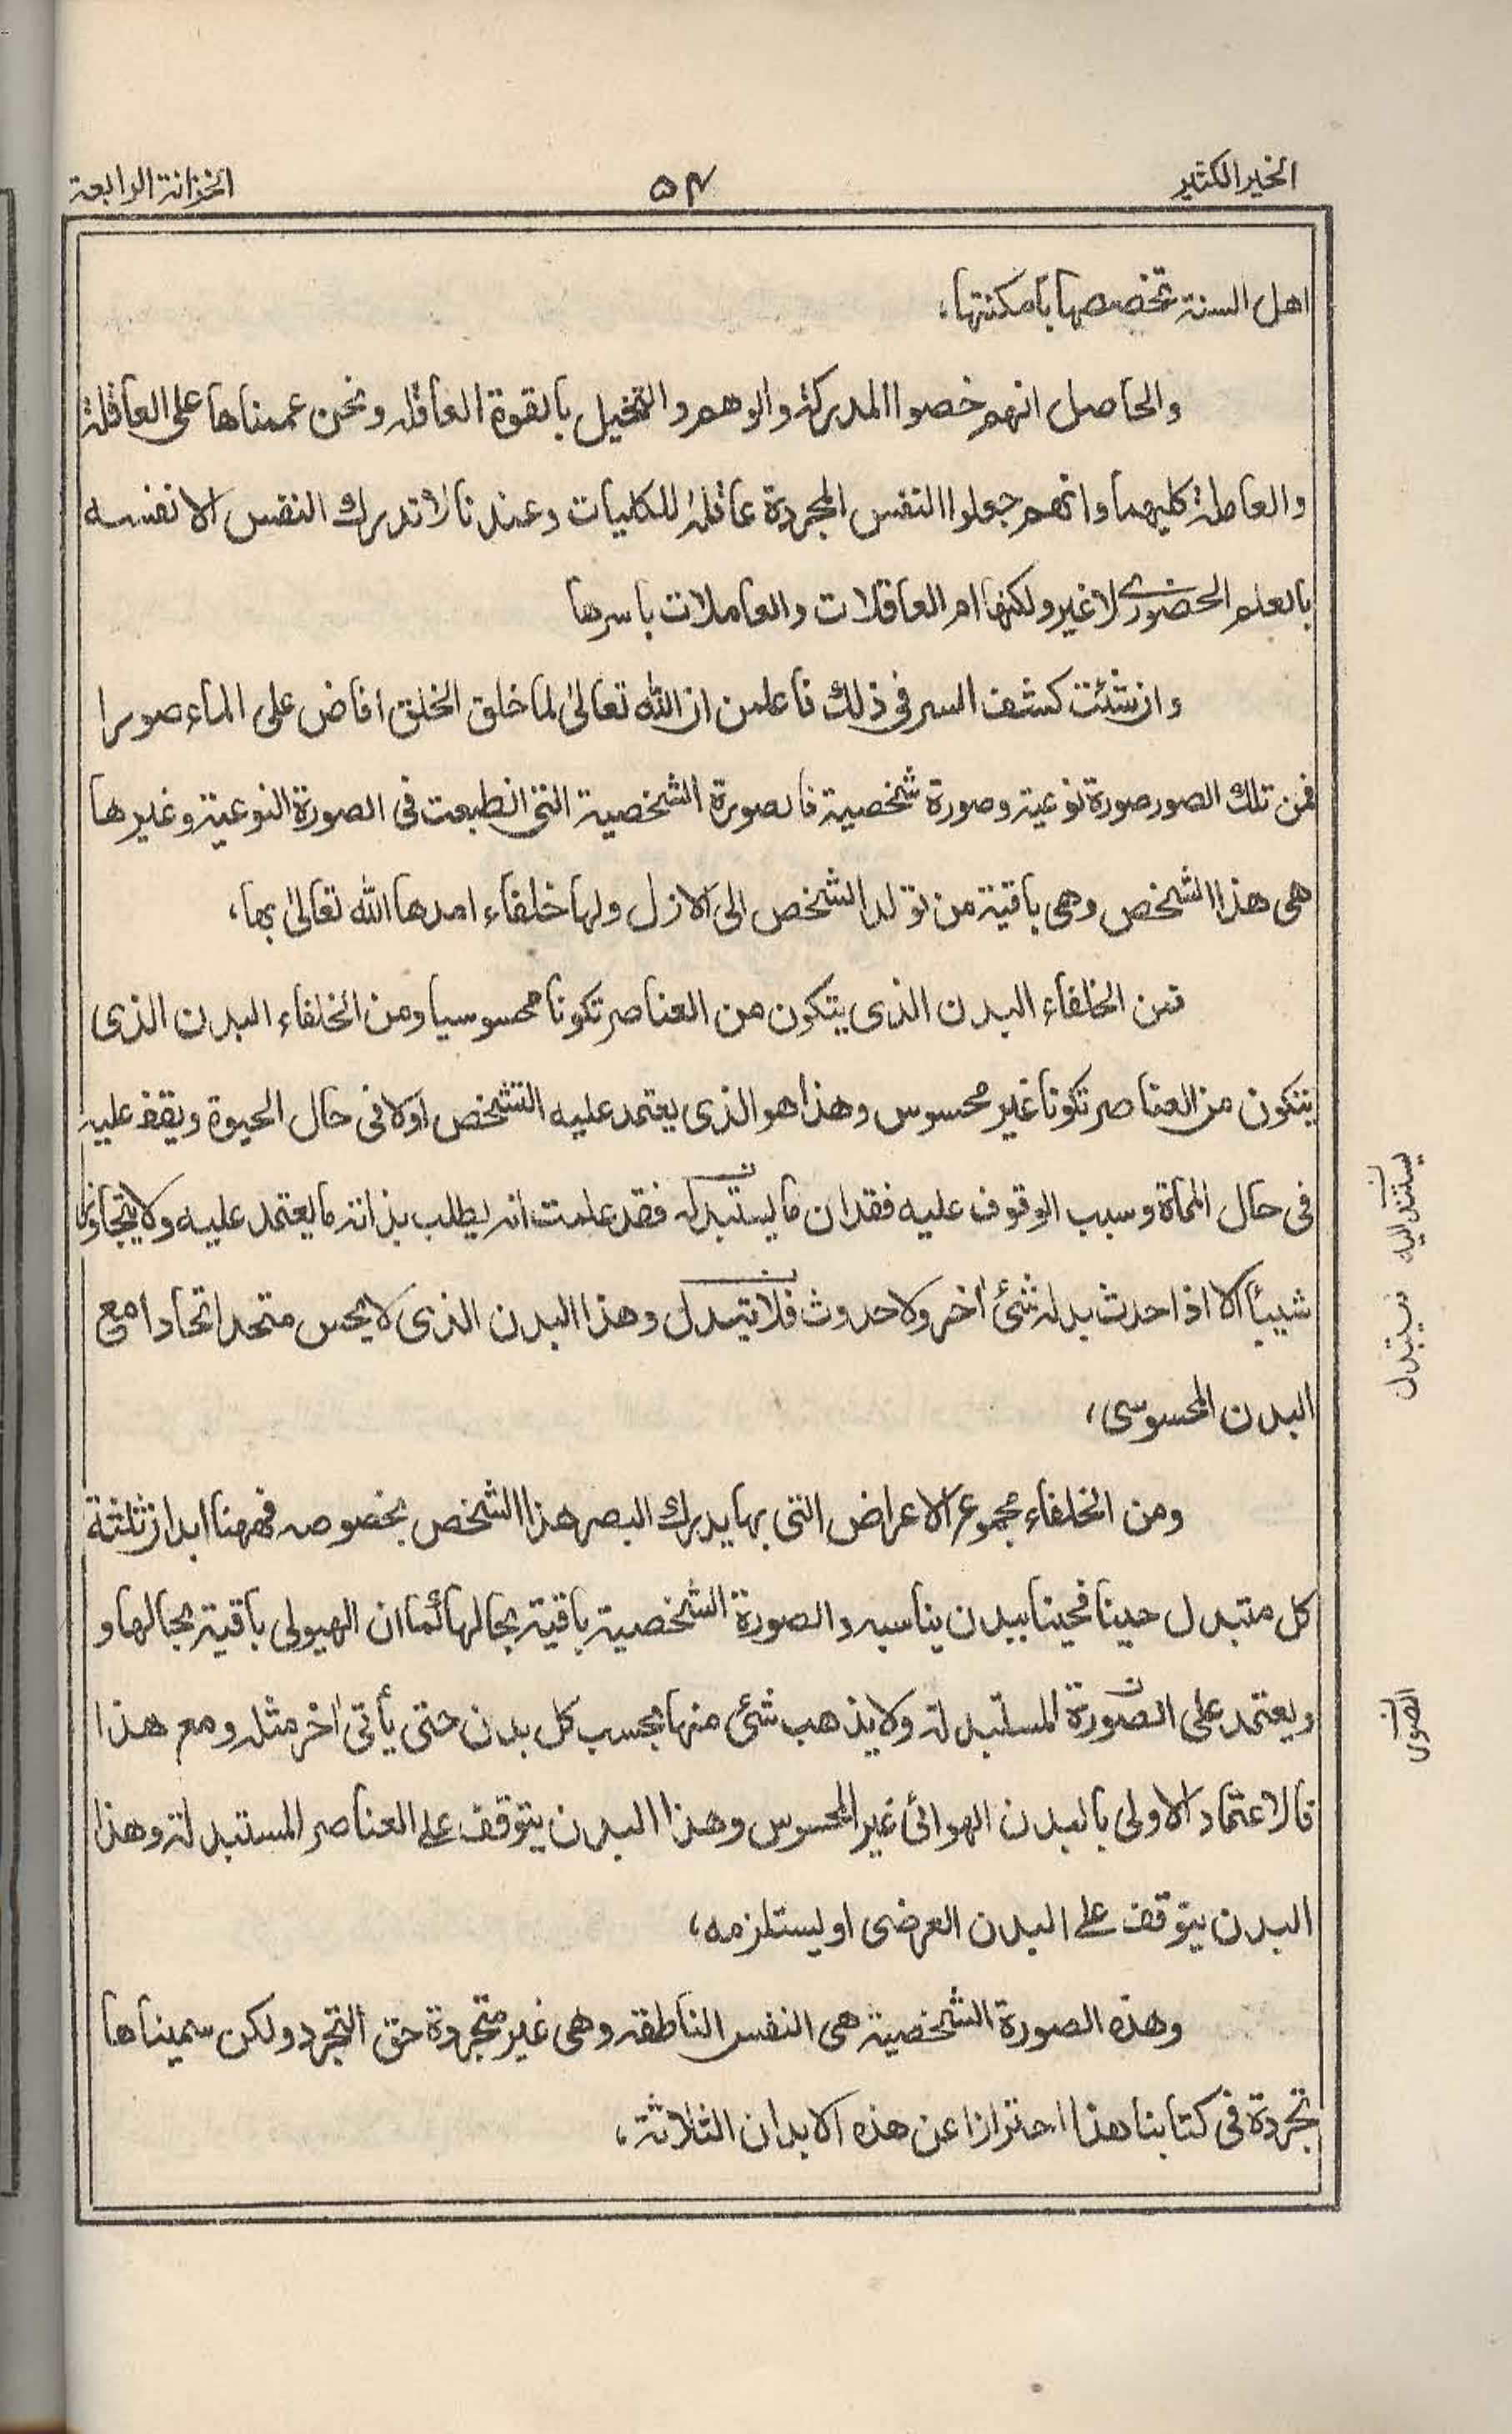 الخير الكثير
٥٤
الخزانة الرابعة
اهل السنة تخصصها بامكنتها،
والحاصل انهم خصوا المدركة والوهم والتخيل بالقوة العاقلة ونحن عممناها على العاقلة
والعاملة كليهما وانهم جعلوا النفس المجردة عاقلة للكليات وعندنا لا تدرك النفس الا نفسه
بالعلم الحضوري لا غير ولكنها ام العاقلات والعاملات باسرها
وان شئت كشف السر فى ذلك فاعلمن ان الله تعالىٰ لما خلق الخلق افاض على الماء صورا
فمن تلك الصور صورة نوعية وصورة شخصية فالصورة الشخصية التى انطبعت فى الصورة النوعية وغيرها
هى هذا الشخص وهى باقية من تولد الشخص الى الازل ولها خلفاء امدها الله تعالىٰ بها،
فمن الخلفاء البدن الذى يتكون من العناصر تكونا محسوسيا ومن الخلفاء البدن الذى
يتكون من العناصر تكونا غير محسوس وهذا هو الذى يعتمد عليه التشخص اولا فى حال الحيوة ويقف عليه
فى حال المماة وسبب الوقوف عليه فقدان ما يستبدله فقد علمت انه يطلب بذاته ما يعتمد عليه ولا يتجاوز
شيئاً الا اذا حدث بدله شئ اٰخر ولا حدوث فلا تيبدل وهذا البدن الذى لا يحس متحد اتحادا مع
البدن المحسوسى،
ومن الخلفاء مجموع الاعراض التى بها يدرك البصر هذا الشخص بخصوصه فههنا ابدان ثلثة
كل متبدل حينا فحينا ببدن يناسبه والصورة الشخصية باقية بحالها كما ان الهيولى باقية بحالها و
ويعتمد على الصورة المستبدلة ولا يذهب شئ منها بحسب كل بدن حتى يأتى اٰخر مثله ومع هذا
فالاعتماد الاولى بالبدن الهوائى غير المحسوس وهذا البدن يتوقف على العناصر المستبدلة وهذا
البدن يتوقف على البدن العرضى او يستلزمه،
وهذه الصورة الشخصية هى النفس الناطقة وهى غير متجردة حق التجرد ولكن سميناها
تجردة فى كتابنا هذا احترازا عن هذه الابدان الثلاثة،
يستند اليه
الصور